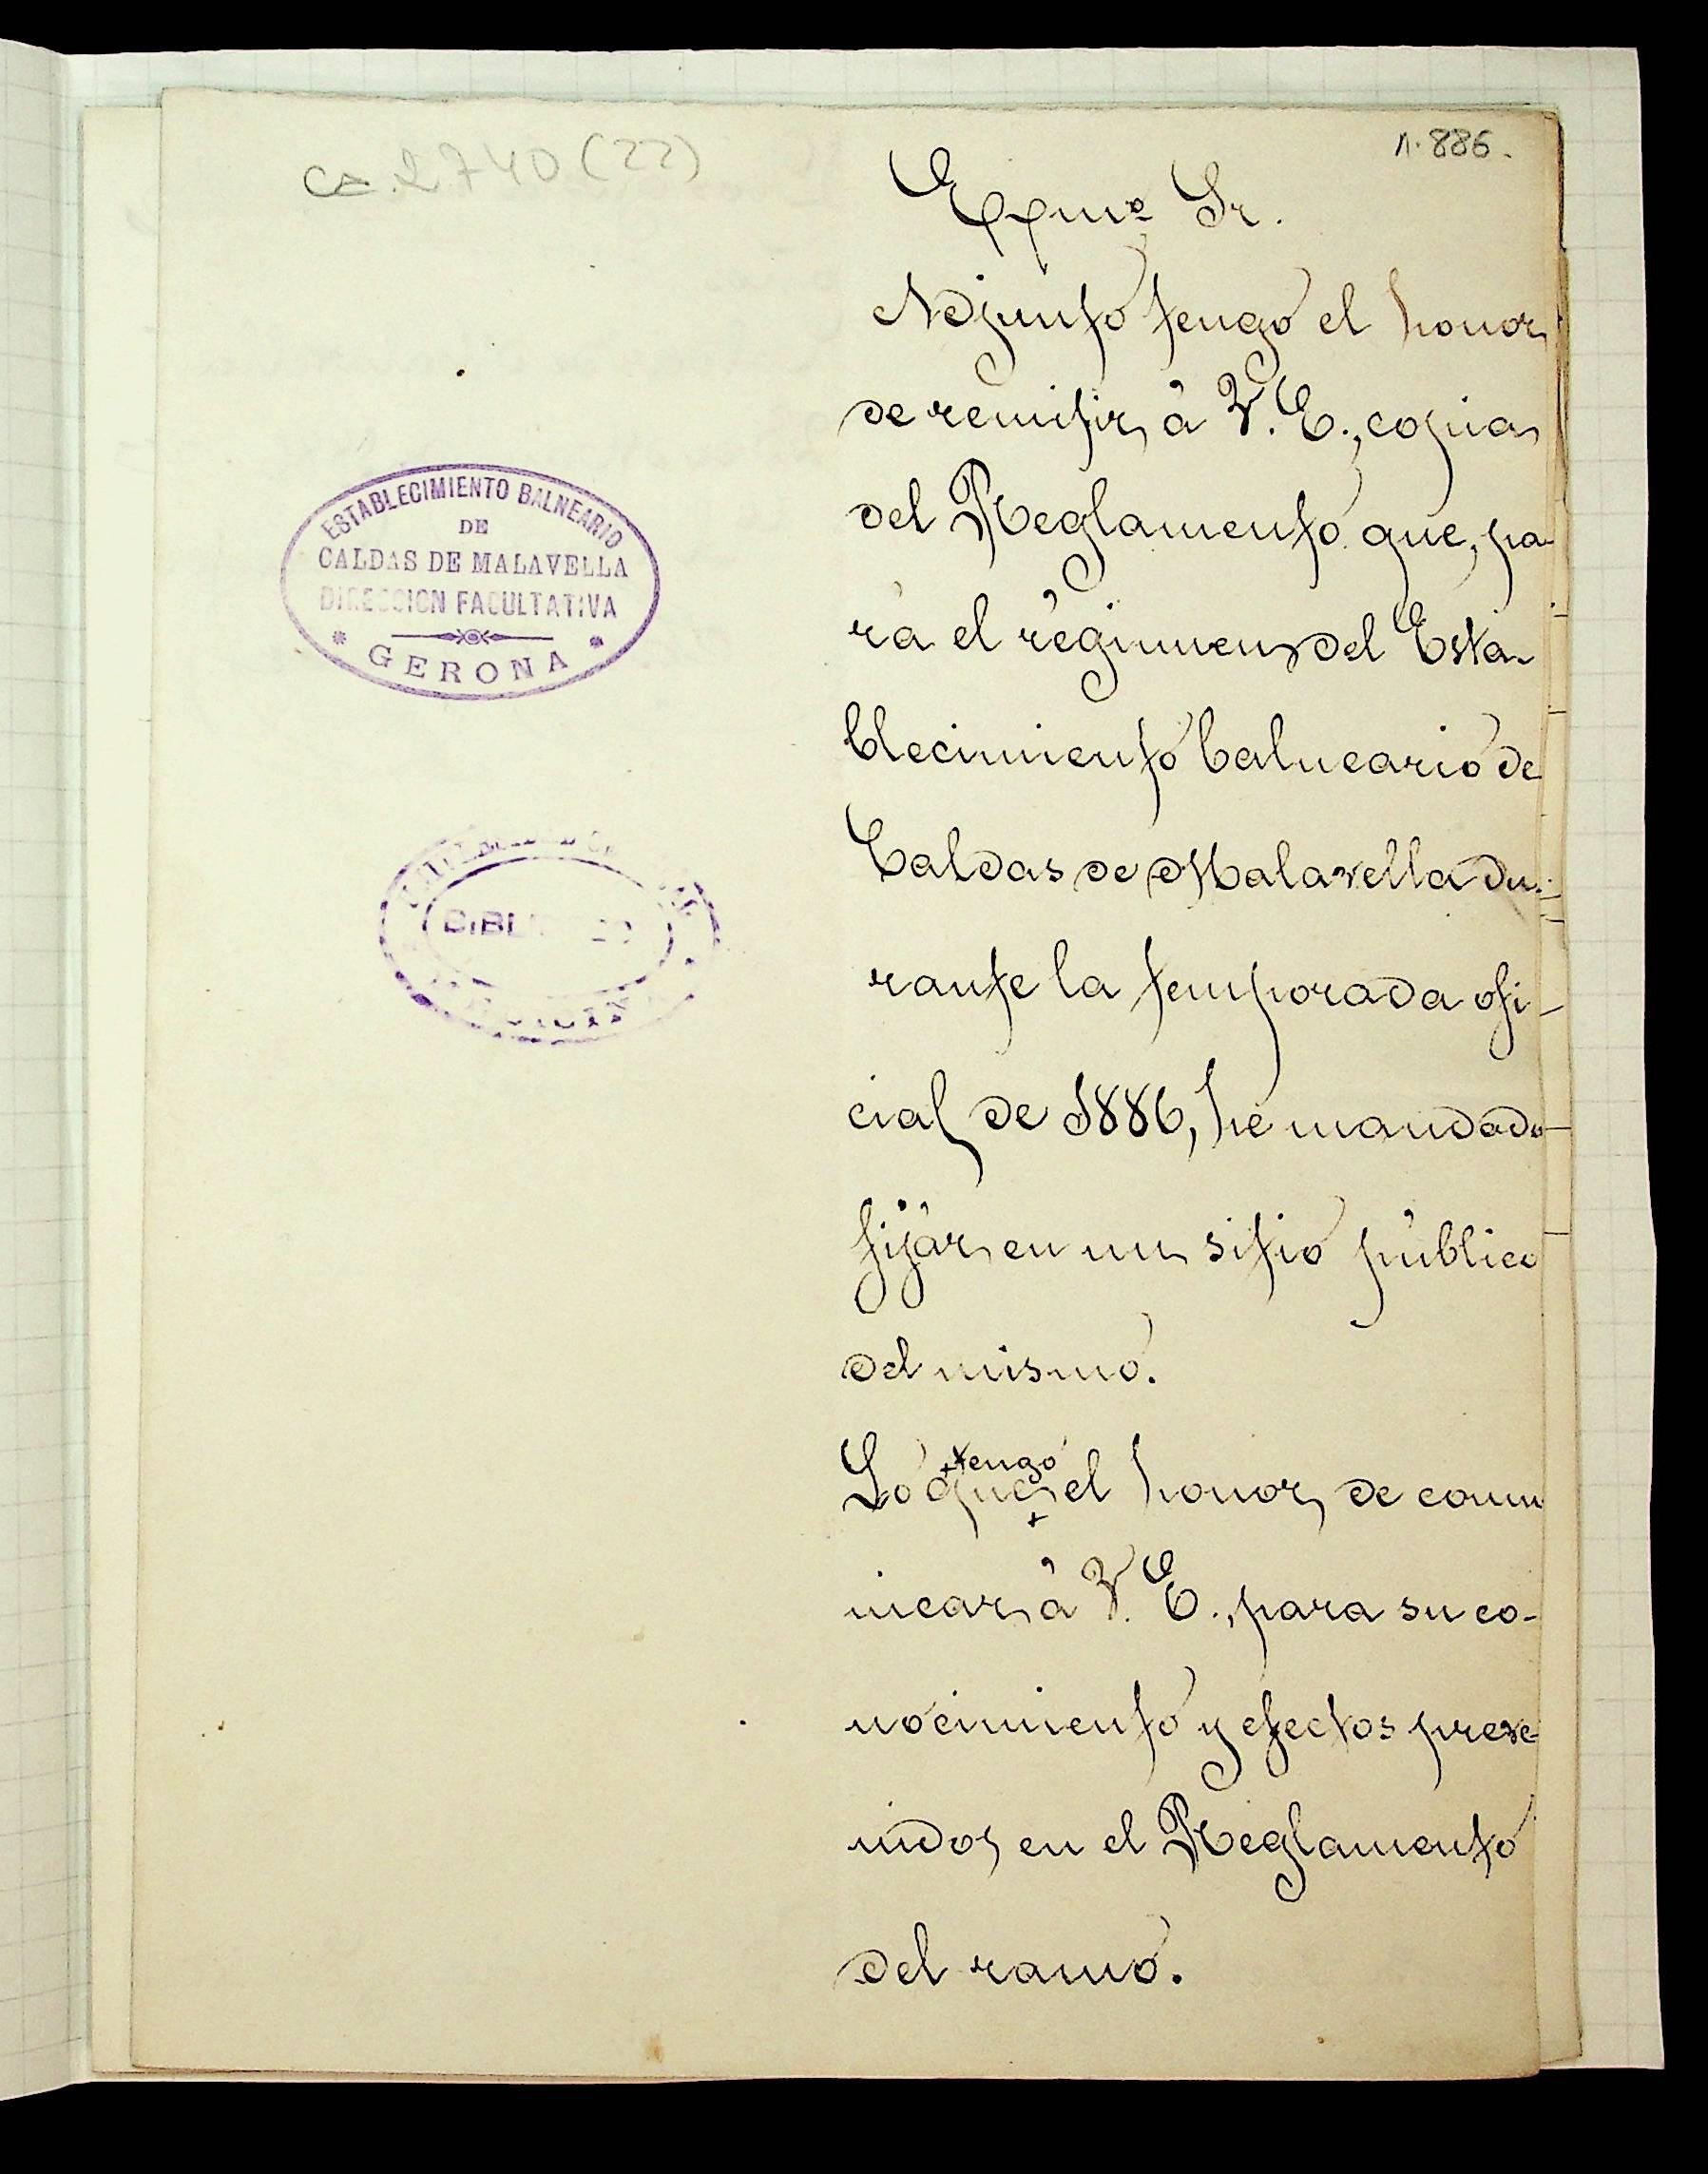 1.886.
ca. 2740 (22)
Exmo Sr.
Adjunto tengo el honor
de remitir á V. E., copia
del Reglamento que, pa-
ra el régimen del Esta-
blecimiento balneario de
Caldas de Malavella du-
rante la temporada ofi-
cial de 1886, he mandado
fijar en un sitio público
del mismo.
tengo
Lo que el honor de comu
nicar á V. E., para su co-
nocimiento y efectos preve-
nidos en el Reglamento
del ramo.
ESTABLECIMIENTO BALNEARIO
DE
CALDAS DE MALAVELLA
DIRECCION FACULTATIVA
GERONA